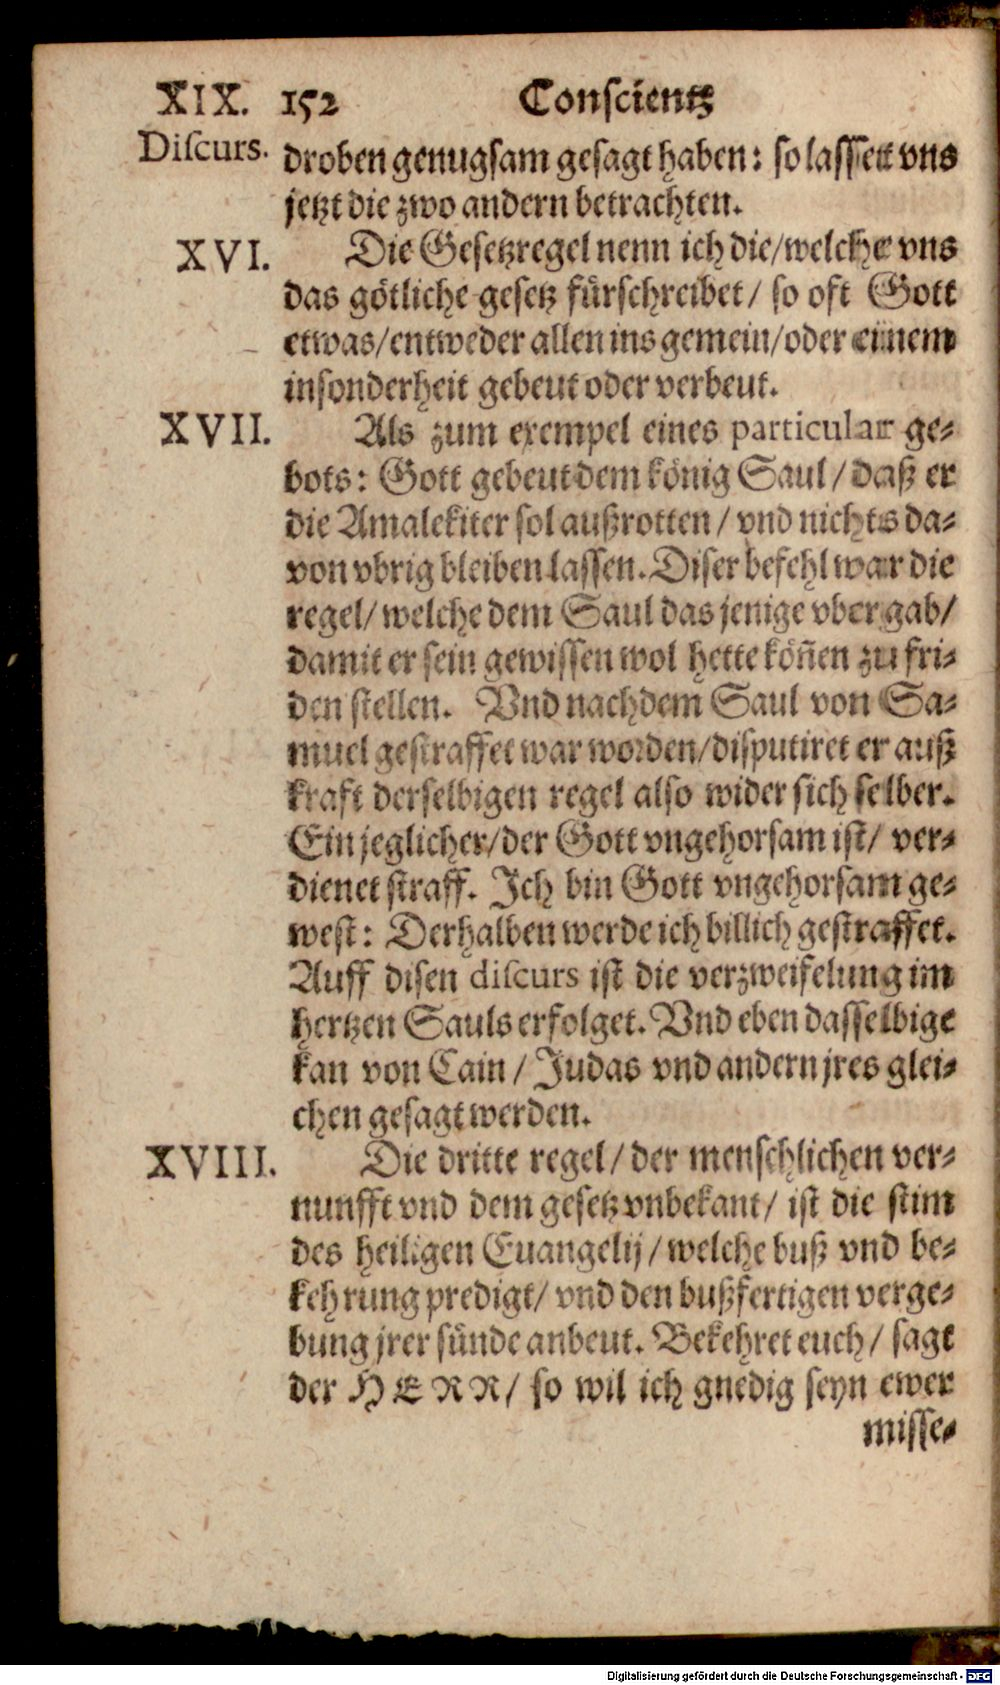 XIX. 152 Conscientz
Discurs.
droben genugsam gesagt haben: so lasset vns
jetzt die zwo andern betrachten.
XVI.
Die Gesetzregel nenn ich die/welche vns
das götliche gesetz fürschreibet/ so oft Gott
etwas/entweder allen ins gemein/oder einem
insonderheit gebeut oder verbeut.
XVII.
Als zum exempel eines particular ge-
bots: Gott gebeut dem könig Saul/ daß er
die Amalekiter sol außrotten/ vnd nichts da-
von vbrig bleiben lassen. Diser befehl war die
regel/ welche dem Saul das jenige vbergab/
damit er sein gewissen wol hette köñen zu fri-
den stellen. Vnd nachdem Saul von Sa-
muel gestraffet war worden/disputiret er auß
kraft derselbigen regel also wider sich selber.
Ein jeglicher/der Gott vngehorsam ist/ ver-
dienet straff. Ich bin Gott vngehorsam ge-
west: Derhalben werde ich billich gestraffet.
Auff disen discurs ist die verzweifelung im
hertzen Sauls erfolget. Vnd eben dasselbige
kan von Cain/ Judas vnd andern jres glei-
chen gesagt werden.
XVIII.
Die dritte regel/ der menschlichen ver-
nunfft vnd dem gesetz vnbekant/ ist die stim
des heiligen Euangelij/ welche buß vnd be-
kehrung predigt/ vnd den bußfertigen verge-
bung jrer sünde anbeut. Bekehret euch/ sagt
der HERR/ so wil ich gnedig seyn ewer
misse-
Digitalisierung gefördert durch die Deutsche Forschungsgemeinschaft - DFG